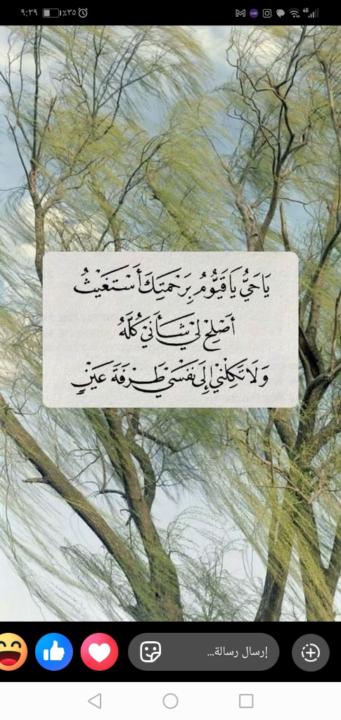 ٩:٣٩
٪٣٥
4G
يَا حَيُّ يَا قَيُّومُ بِرَحْمَتِكَ أَسْتَغِيثُ
أَصْلِحْ لِي شَأْنِي كُلَّهُ
وَلَا تَكِلْنِي إِلَى نَفْسِي طَرْفَةَ عَيْنٍ
إرسال رسالة...